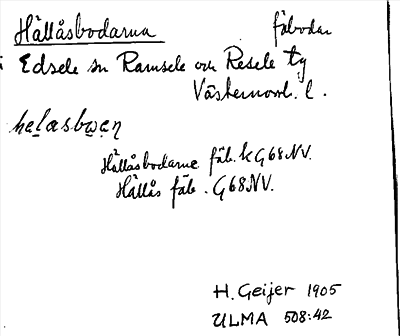 Hällåsbodarna fäbodar
i Edsele sn Ramsele och Resele tg
Västernorrl. l.
hęlasbwęn
Hällåsbodarne fäb. k G68NV.
Hällås fäb. G68NV.
H. Geijer 1905
ULMA 508:42